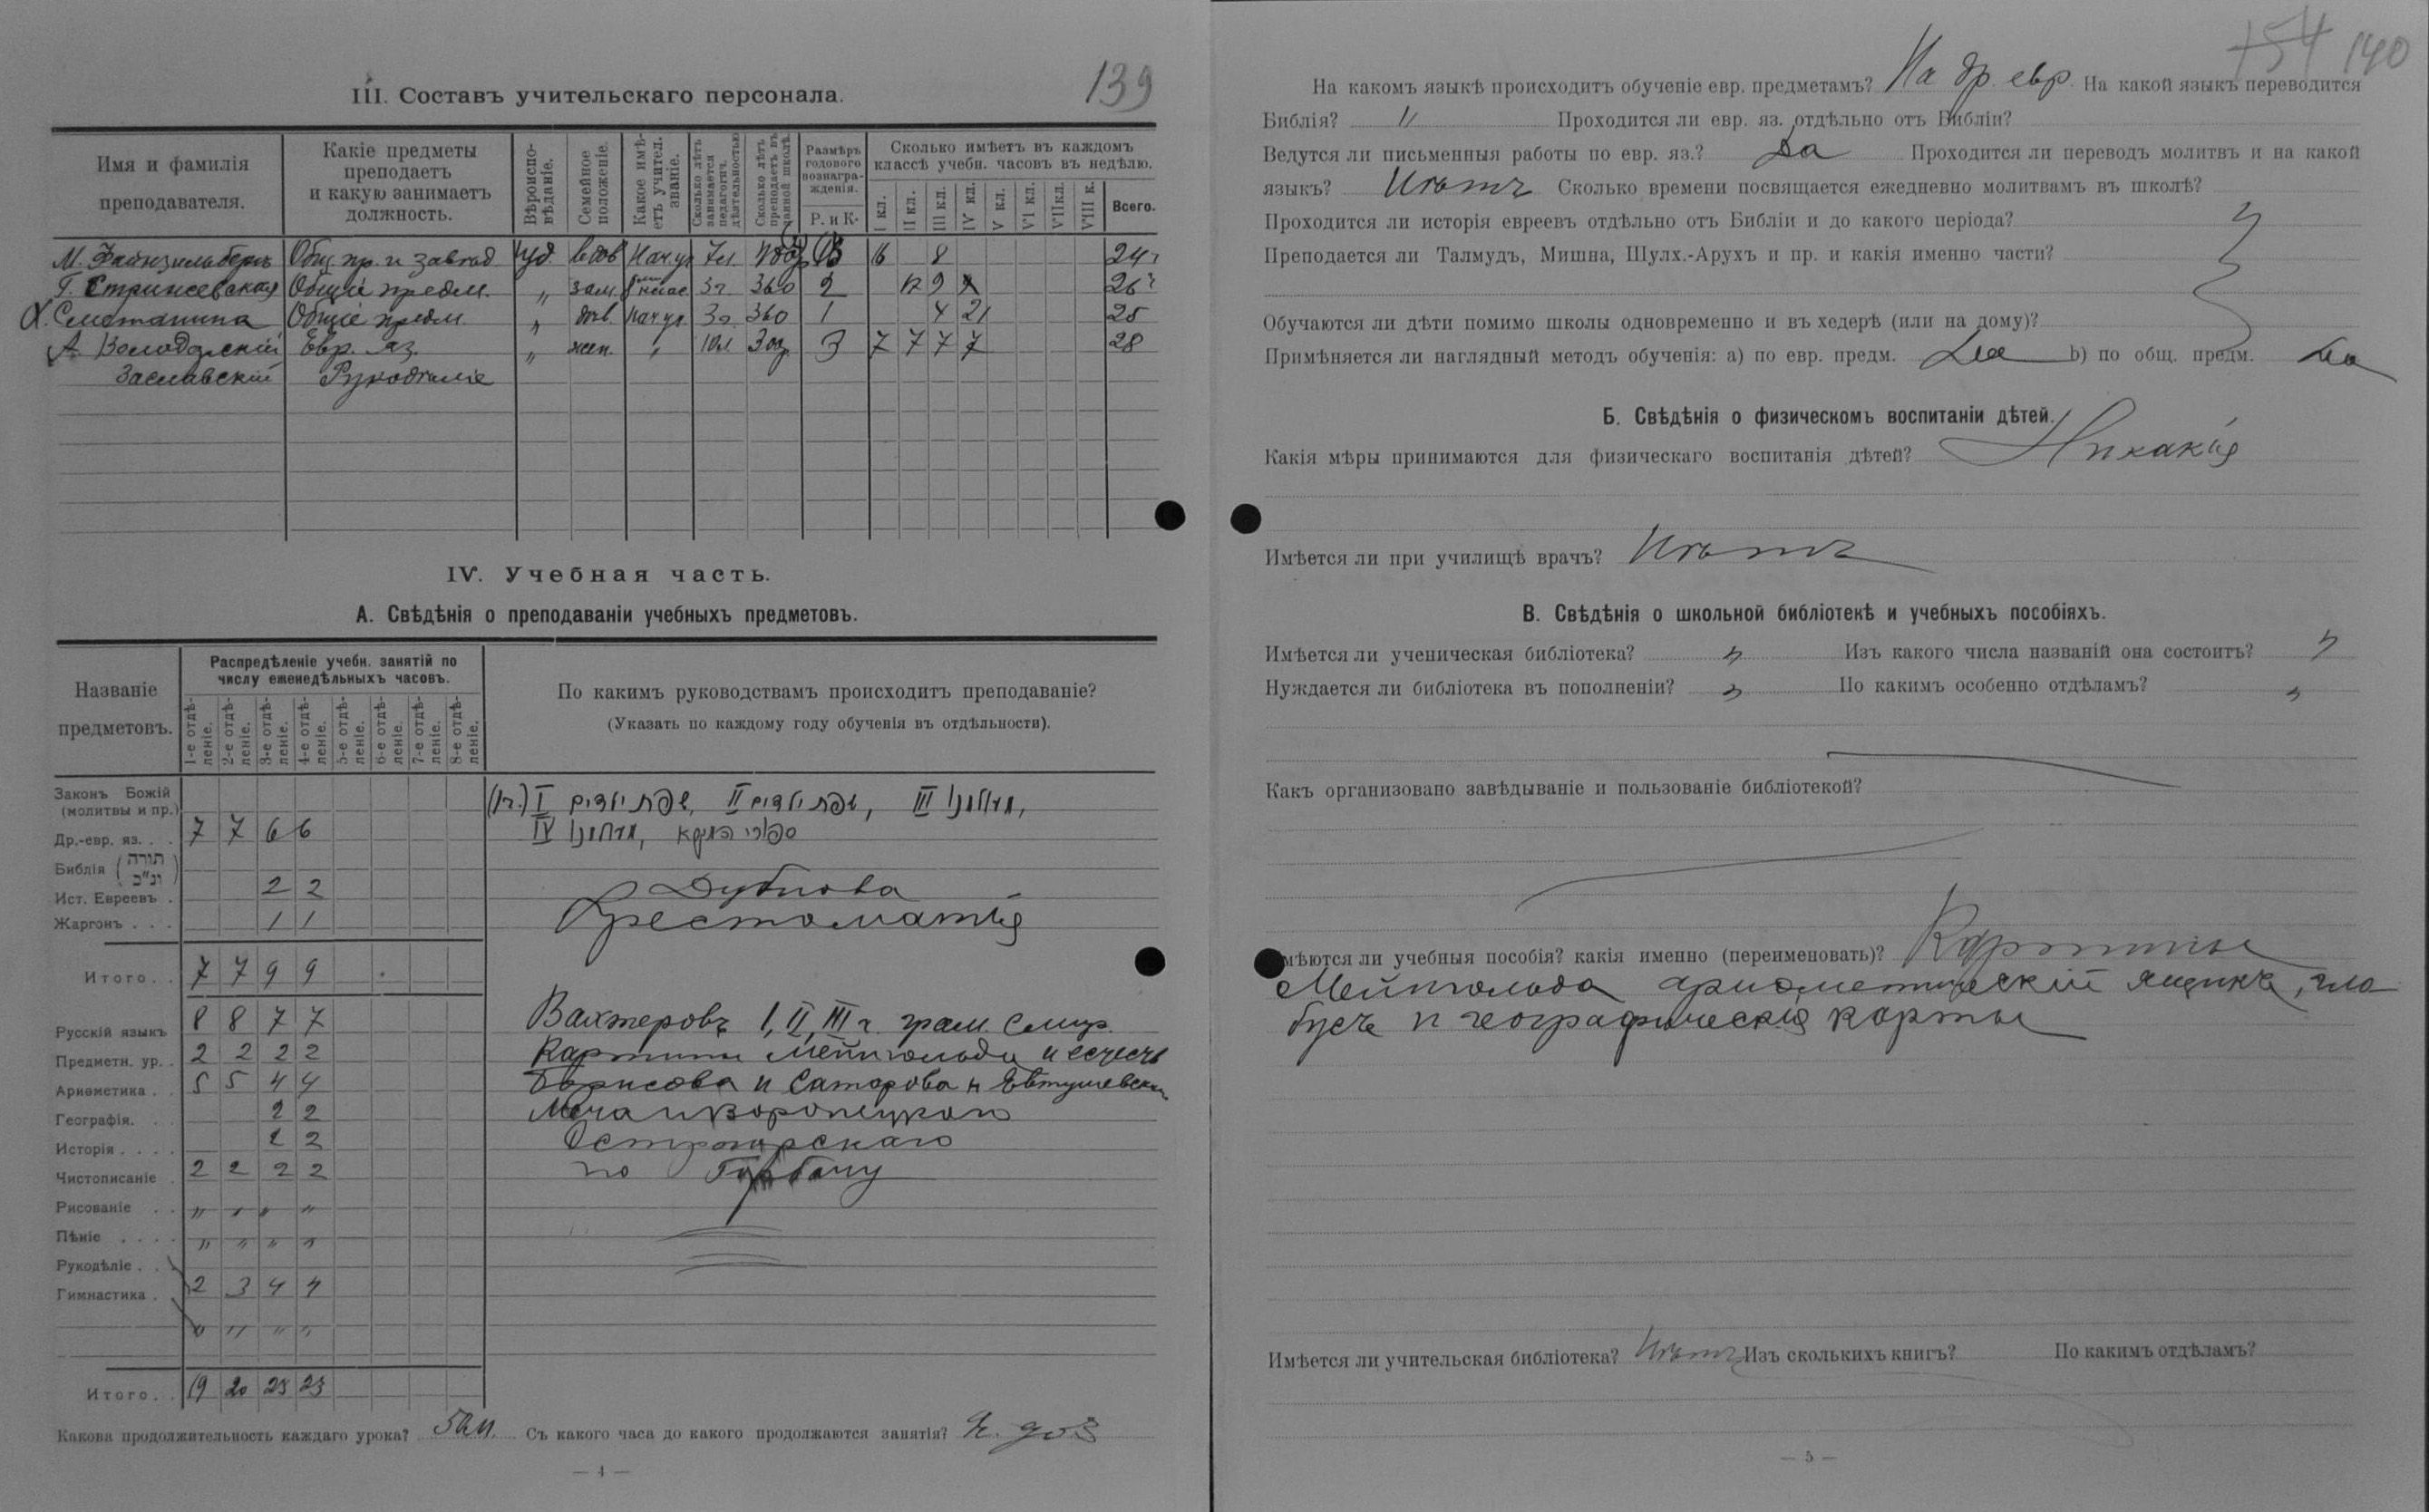 139
III. Составъ учительскаго персонала.
Имя и фамилія преподавателя.
Какіе предметы преподаетъ и какую занимаетъ должность.
Вѣроиспо-вѣданіе.
Семейное положеніе.
Какое имѣ-етъ учител. званіе.
Сколько лѣтъ занимается педагогич. дѣятельностью
Сколько лѣтъ преподаетъ въ данной школѣ.
Размѣръ годового вознагра-жденія.
Р. и К.
Сколько имѣетъ въ каждомъ классѣ учебн. часовъ въ недѣлю.
I кл. II кл. III кл. IV кл. V кл. VI кл. VII кл. VIII к. Всего.
М. Файнзильберъ Общ. пр. и завѣд 7 8 24
Г. Стрижевская Общіе предм. „ зам. 360 2 12 9 26
Х. Сметанина Общіе предм. „ нач. уч. 360 1 4 21 25
А. Володарскій Евр. яз. „ жен. „ 3 7 7 7 7 28
Заславскій Рукодѣліе
IV. Учебная часть.
А. Свѣдѣнія о преподаваніи учебныхъ предметовъ.
Названіе предметовъ.
Распредѣленіе учебн. занятій по числу еженедѣльныхъ часовъ.
1-е отдѣ-леніе. 2-е отдѣ-леніе. 3-е отдѣ-леніе. 4-е отдѣ-леніе. 5-е отдѣ-леніе. 6-е отдѣ-леніе. 7-е отдѣ-леніе. 8-е отдѣ-леніе.
По какимъ руководствамъ происходитъ преподаваніе?
(Указать по каждому году обученія въ отдѣльности).
Законъ Божій (молитвы и пр.)
I II III
Др.-евр. яз. . . 7 7 6 6 IV
Библія (תורה ונ"כ)
Ист. Евреевъ . 2 2 Дубнова
Жаргонъ . . . 1 1 Хрестоматія
Итого. . 7 7 9 9
Русскій языкъ 8 8 7 7 Вахтеровъ I, II, III г. грам. Смир.
Предметн. ур. . 2 2 2 2 Картины Мейнгольда
Ариѳметика . . 5 5 4 4 Борисова и Сатарова и Евтушевскаго
Географія. . . 2 2 Меча и Воронецкаго
Исторія . . . . 2 2 Острогорскаго
Чистописаніе . 2 2 2 2 по Горбачу
Рисованіе . . „ „ „ „
Пѣніе . . . . „ „ „ „
Рукодѣліе . .
Гимнастика . 2 3 4 4
„ „ „ „
Итого. . 19 20 23 23
Какова продолжительность каждаго урока? 50 м. Съ какого часа до какого продолжаются занятія? 9 до 3
— 4 —
154 140
На какомъ языкѣ происходитъ обученіе евр. предметамъ? На др. евр. На какой языкъ переводится
Библія? „ Проходится ли евр. яз. отдѣльно отъ Библіи?
Ведутся ли письменныя работы по евр. яз.? Да Проходится ли переводъ молитвъ и на какой
языкъ? Нѣтъ Сколько времени посвящается ежедневно молитвамъ въ школѣ?
Проходится ли исторія евреевъ отдѣльно отъ Библіи и до какого періода?
Преподается ли Талмудъ, Мишна, Шулх.-Арухъ и пр. и какія именно части?
Обучаются ли дѣти помимо школы одновременно и въ хедерѣ (или на дому)?
Примѣняется ли наглядный методъ обученія: а) по евр. предм. Да b) по общ. предм. Да
Б. Свѣдѣнія о физическомъ воспитаніи дѣтей.
Какія мѣры принимаются для физическаго воспитанія дѣтей? Никакія
Имѣется ли при училищѣ врачъ? Нѣтъ
В. Свѣдѣнія о школьной библіотекѣ и учебныхъ пособіяхъ.
Имѣется ли ученическая библіотека? „ Изъ какого числа названій она состоитъ? „
Нуждается ли библіотека въ пополненіи? „ По какимъ особенно отдѣламъ? „
Какъ организовано завѣдываніе и пользованіе библіотекой?
мѣются ли учебныя пособія? какія именно (переименовать)? Картины
Мейнгольда ариѳметическій ящикъ, гло
бусъ и географическія карты
Имѣется ли учительская библіотека? Нѣтъ Изъ сколькихъ книгъ? По какимъ отдѣламъ?
— 5 —